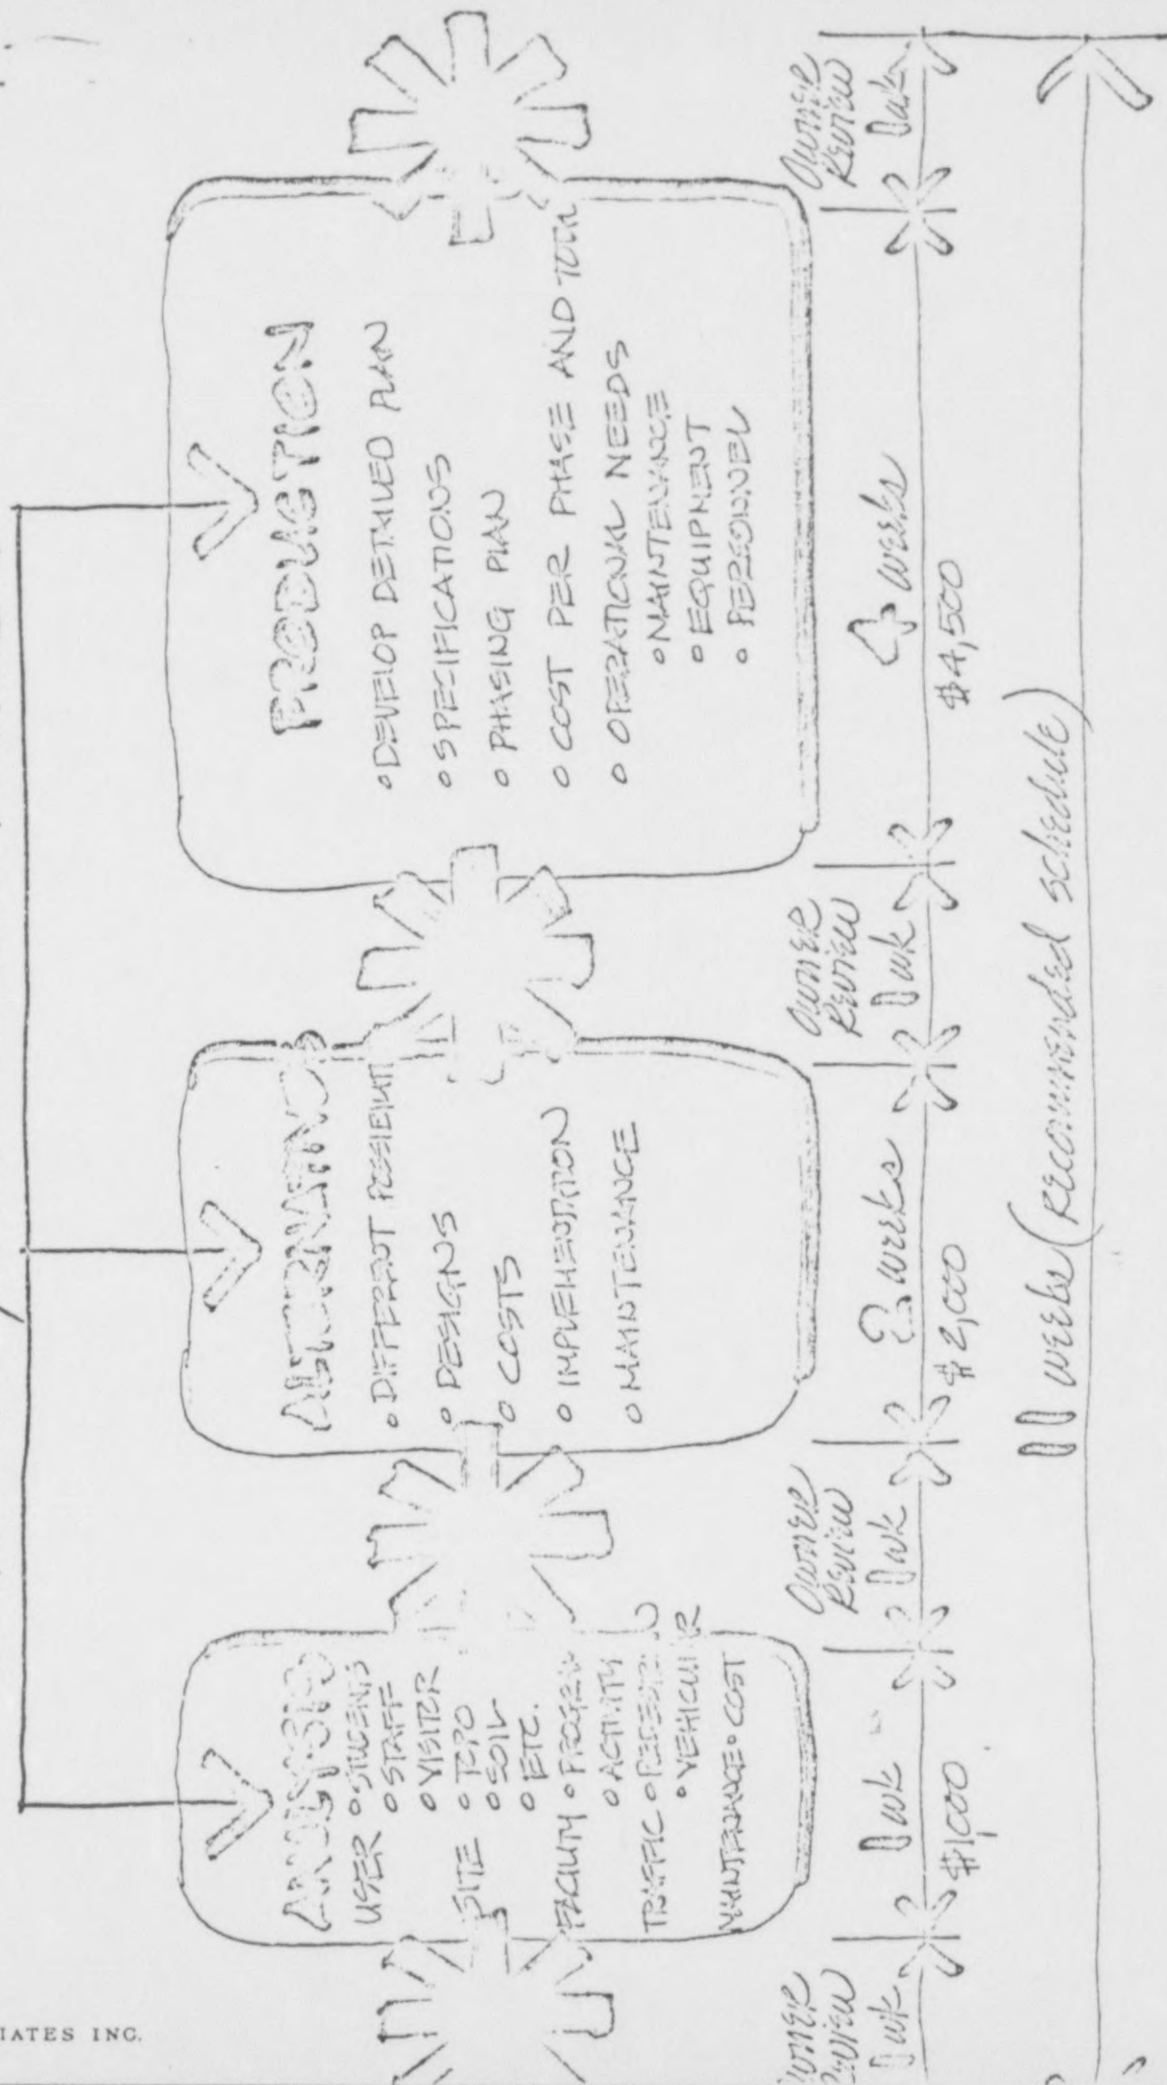 IATES INC.
ANALYSIS
USER • STUDENTS
• STAFF
• VISITOR
SITE • TOPO
• SOIL
• ETC.
FACILITY • PROGRAM
• ACTIVITY
TRAFFIC • PEDESTRIAN
• VEHICULAR
MAINTENANCE • COST
ALTERNATIVES
• DIFFERENT
• DESIGNS
• COSTS
• IMPLEMENTATION
• MAINTENANCE
PRODUCTION
• DEVELOP DETAILED PLAN
• SPECIFICATIONS
• PHASING PLAN
• COST PER PHASE AND TOTAL
• OPERATIONAL NEEDS
• MAINTENANCE
• EQUIPMENT
• PERSONNEL
Owner
Review
1 wk.
1 wk
$1,000
Owner
Review
1 wk
2 weeks
$2,000
Owner
Review
1 wk
4 weeks
$4,500
Owner
Review
1 wk
11 weeks (Recommended schedule)